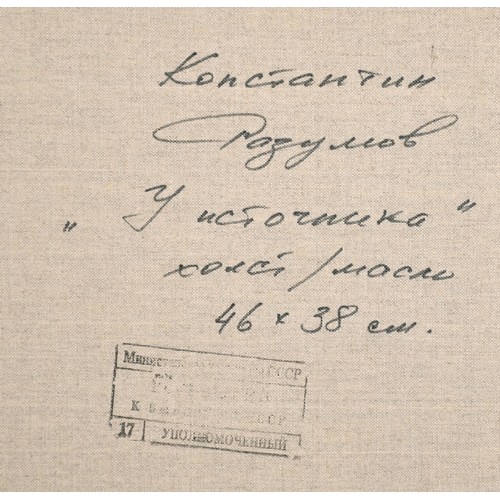 Константин
Разумов
„ У источника "
холст/масло
46 × 38 см.
СССР
К СССР
17 УПОЛНОМОЧЕННЫЙ